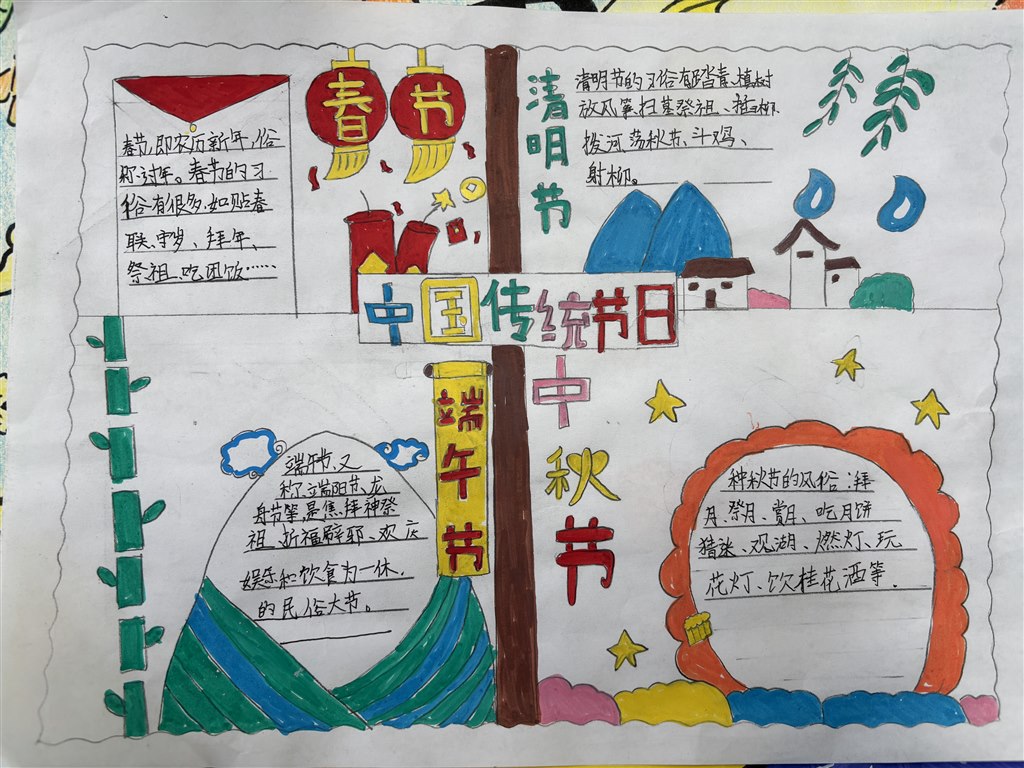 春节
春节,即农历新年,俗
称过年。春节的习
俗有很多,如贴春
联、守岁、拜年、
祭祖、吃团饭……
清明节
清明节的习俗有踏青、植树
放风筝、扫墓祭祖、插柳
拨河、荡秋节、斗鸡、
射柳。
中国传统节日
端午节
端午节,又
称端阳节、龙
舟节等,是集拜神祭
祖、祈福辟邪、欢庆
娱乐和饮食为一休,
的民俗大节。
中秋节
种秋节的风俗:拜
月、祭月、赏月、吃月饼
猜迷、观湖、燃灯、玩
花灯、饮桂花酒等.